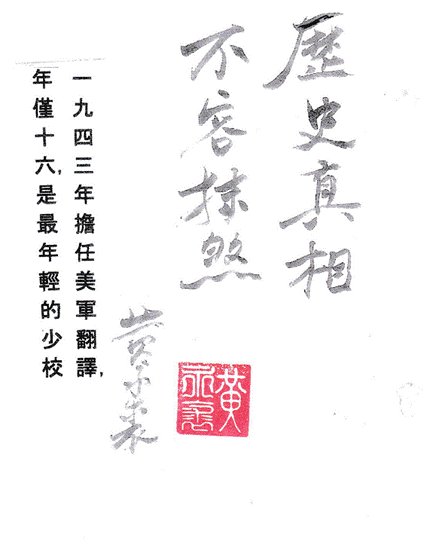 歷史真相
不容抹煞
黃
一九四三年擔任美軍翻譯,
年僅十六,是最年輕的少校